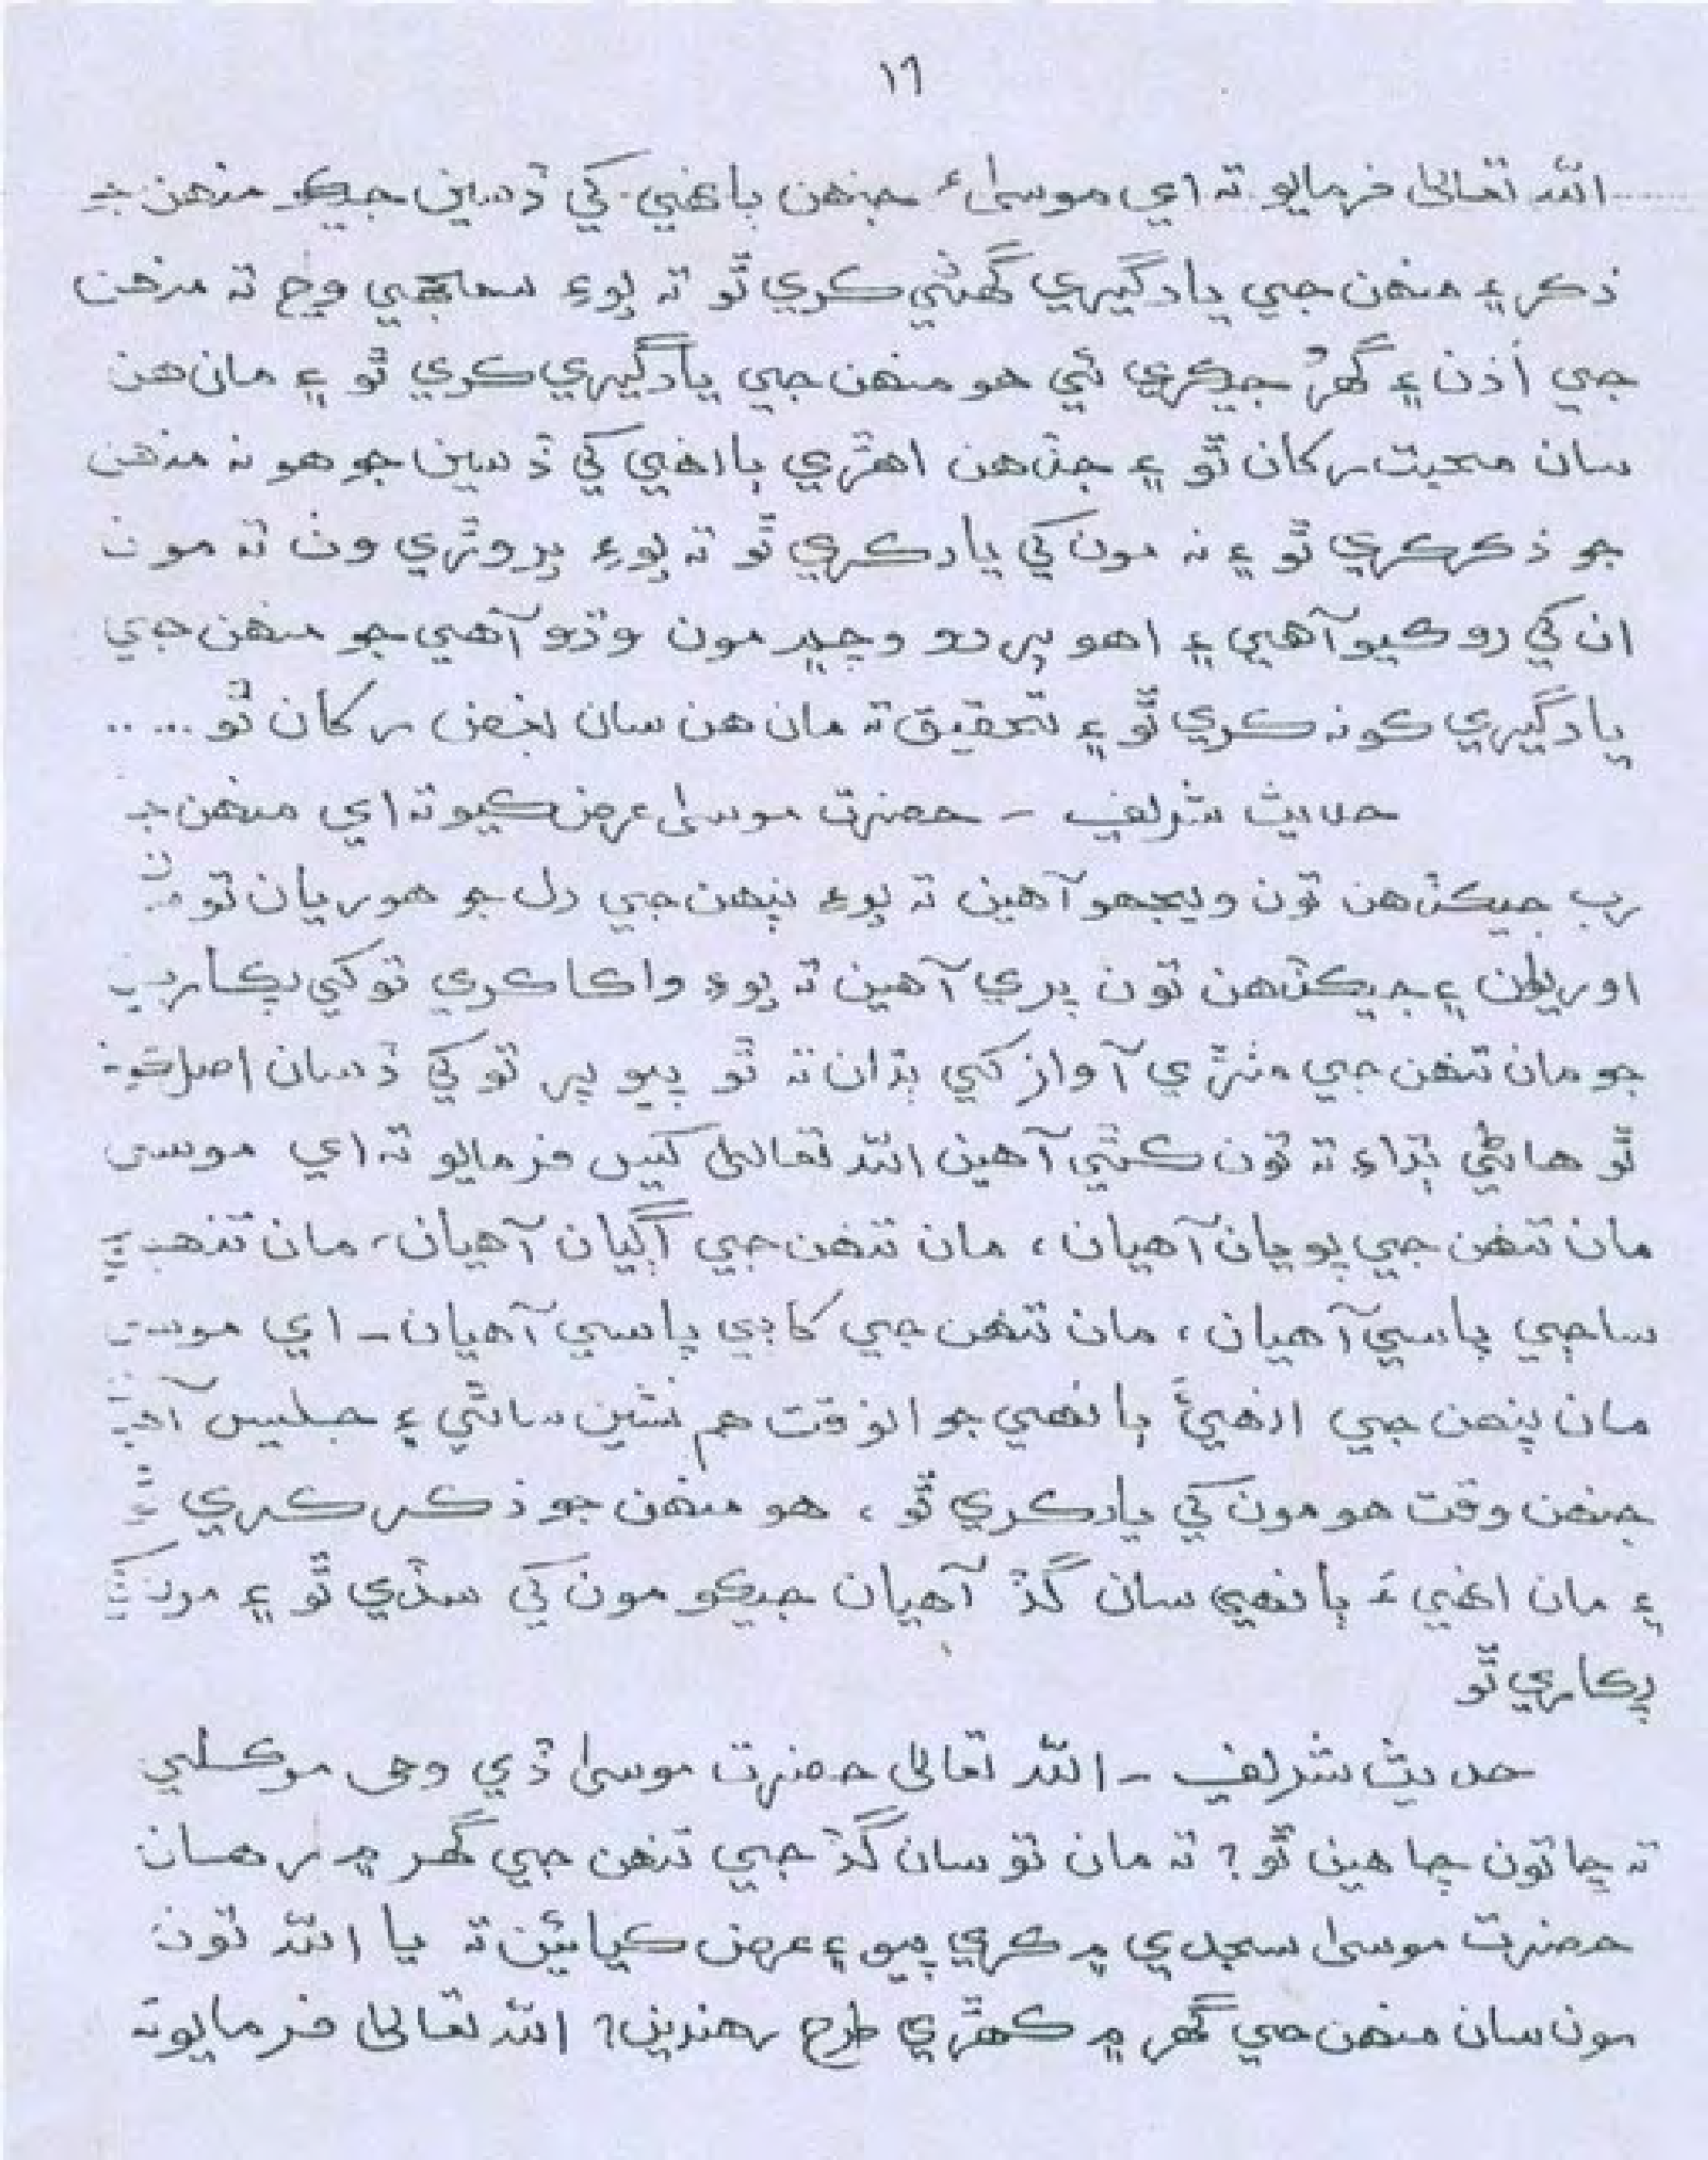 ١٦
الله تعالى فرمايو ته اي موسىٰ جنهن ٻانهي کي ڏسين جيڪو منهن جو
ذڪر ۽ منهن جي يادگيري گهڻي ڪري ٿو ته پوءِ سمجهي وڃ ته منهن
جي اُذن ۽ گهُر جيڪري ئي هو منهن جي يادگيري ڪري ٿو ۽ مان هن
سان محبت رکان ٿو ۽ جڏهن اهڙي ٻانهي کي ڏسين جو هو نه منهن
جو ذڪر ڪري ٿو ۽ نه مون کي ياد ڪري ٿو ته پوءِ پروڙي وٺ ته مون
ان کي روڪيو آهي ۽ اهو پردو وچ ۾ مون وڌو آهي جو منهن جي
يادگيري ڪونه ڪري ٿو ۽ تحقيق ته مان هن سان بغض رکان ٿو .....
حديث شريف - حضرت موسىٰ عرض ڪيو ته اي منهن جا
رب جيڪڏهن تون ويجهو آهين ته پوءِ پنهن جي دل جو هوريان تو سان
اوريان ۽ جيڪڏهن تون پري آهين ته پوءِ واڪا ڪري توکي پڪاريان
جو مان تنهن جي مٺڙي آواز کي ٻڌان ته ٿو ٻيو پر توکي ڏسان اصل ڪونه
ٿو هاڻي ٻڌاءِ ته تون ڪٿي آهين الله تعالىٰ کيس فرمايو ته اي موسى
مان تنهن جي پويان آهيان، مان تنهن جي اڳيان آهيان، مان تنهن
ساڄي پاسي آهيان، مان تنهن جي کاٻي پاسي آهيان - اي موسى
مان پنهن جي انهيءَ ٻانهي جو ان وقت هم نشين ساٿي ۽ جليس آهيان
جنهن وقت هو مون کي ياد ڪري ٿو، هو منهن جو ذڪر ڪري
۽ مان انهيءَ ٻانهي سان گڏ آهيان جيڪو مون کي سڏي ٿو ۽ مون
پڪاري ٿو
حديث شريف - الله تعالىٰ حضرت موسىٰ ڏي وحى موڪلي
ته ڇا تون چاهين ٿو؟ ته مان تو سان گڏ جي تنهن جي گهر ۾ رهان
حضرت موسىٰ سجدي ۾ ڪري پيو ۽ عرض ڪيائين ته يا الله تون
مون سان منهن جي گهر ۾ ڪهڙي طرح رهندين؟ الله تعالىٰ فرمايو ته